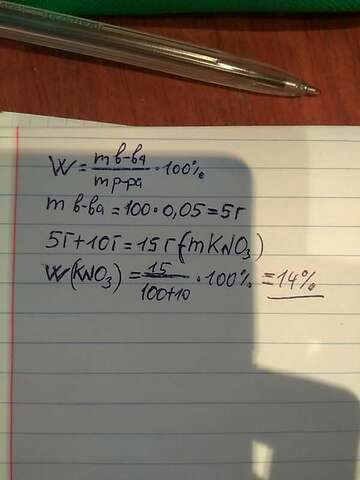 W = m в-ва / m р-ра · 100%
m в-ва = 100 · 0,05 = 5г
5г + 10г = 15г (m KNO₃)
W(KNO₃) = 15 / 100+10 · 100% = 14%